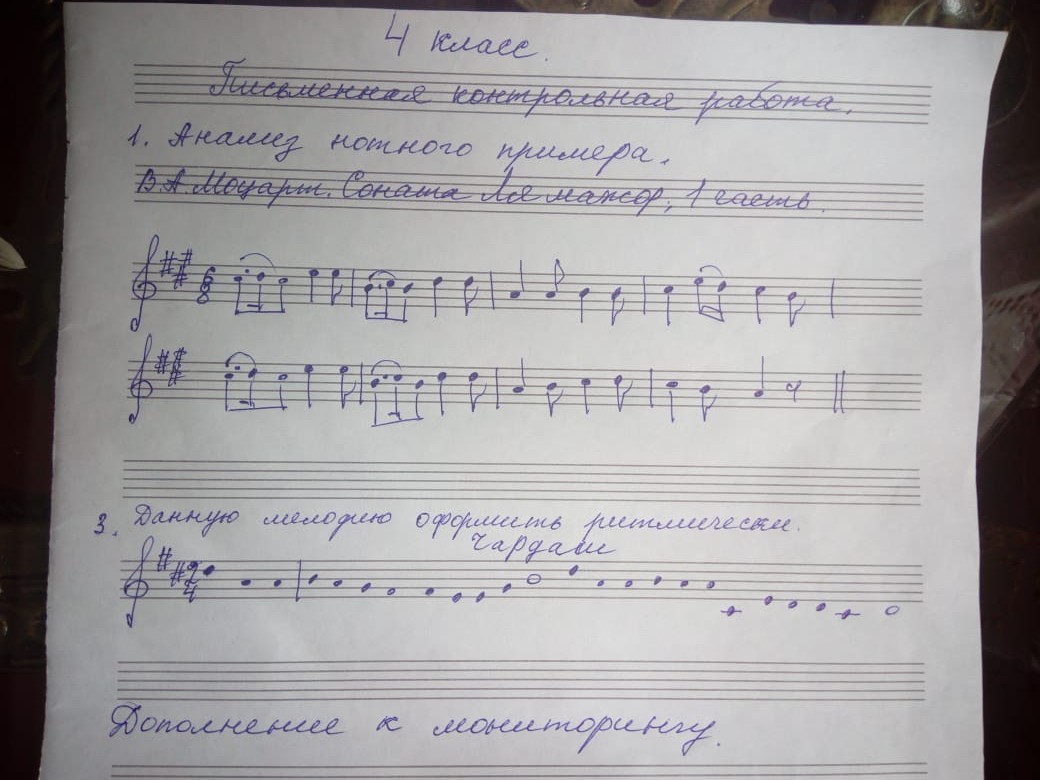 4 класс.
Письменная контрольная работа.
1. Анализ нотного примера.
В.А. Моцарт. Соната Ля мажор, 1 часть.
6
8
3. Данную мелодию оформить ритмически.
Чардаш
2
4
Дополнение к мониторингу.